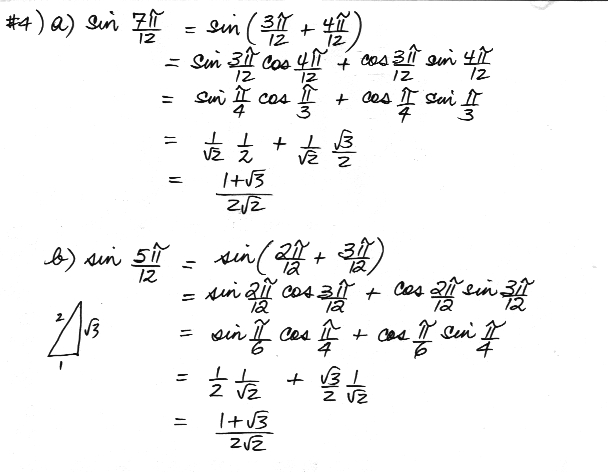 #4) a) sin 7π/12 = sin (3π/12 + 4π/12)
= sin 3π/12 cos 4π/12 + cos 3π/12 sin 4π/12
= sin π/4 cos π/3 + cos π/4 sin π/3
= 1/√2 1/2 + 1/√2 √3/2
= 1+√3/2√2
b) sin 5π/12 = sin (2π/12 + 3π/12)
= sin 2π/12 cos 3π/12 + cos 2π/12 sin 3π/12
2 √3 1
= sin π/6 cos π/4 + cos π/6 sin π/4
= 1/2 1/√2 + √3/2 1/√2
= 1+√3/2√2